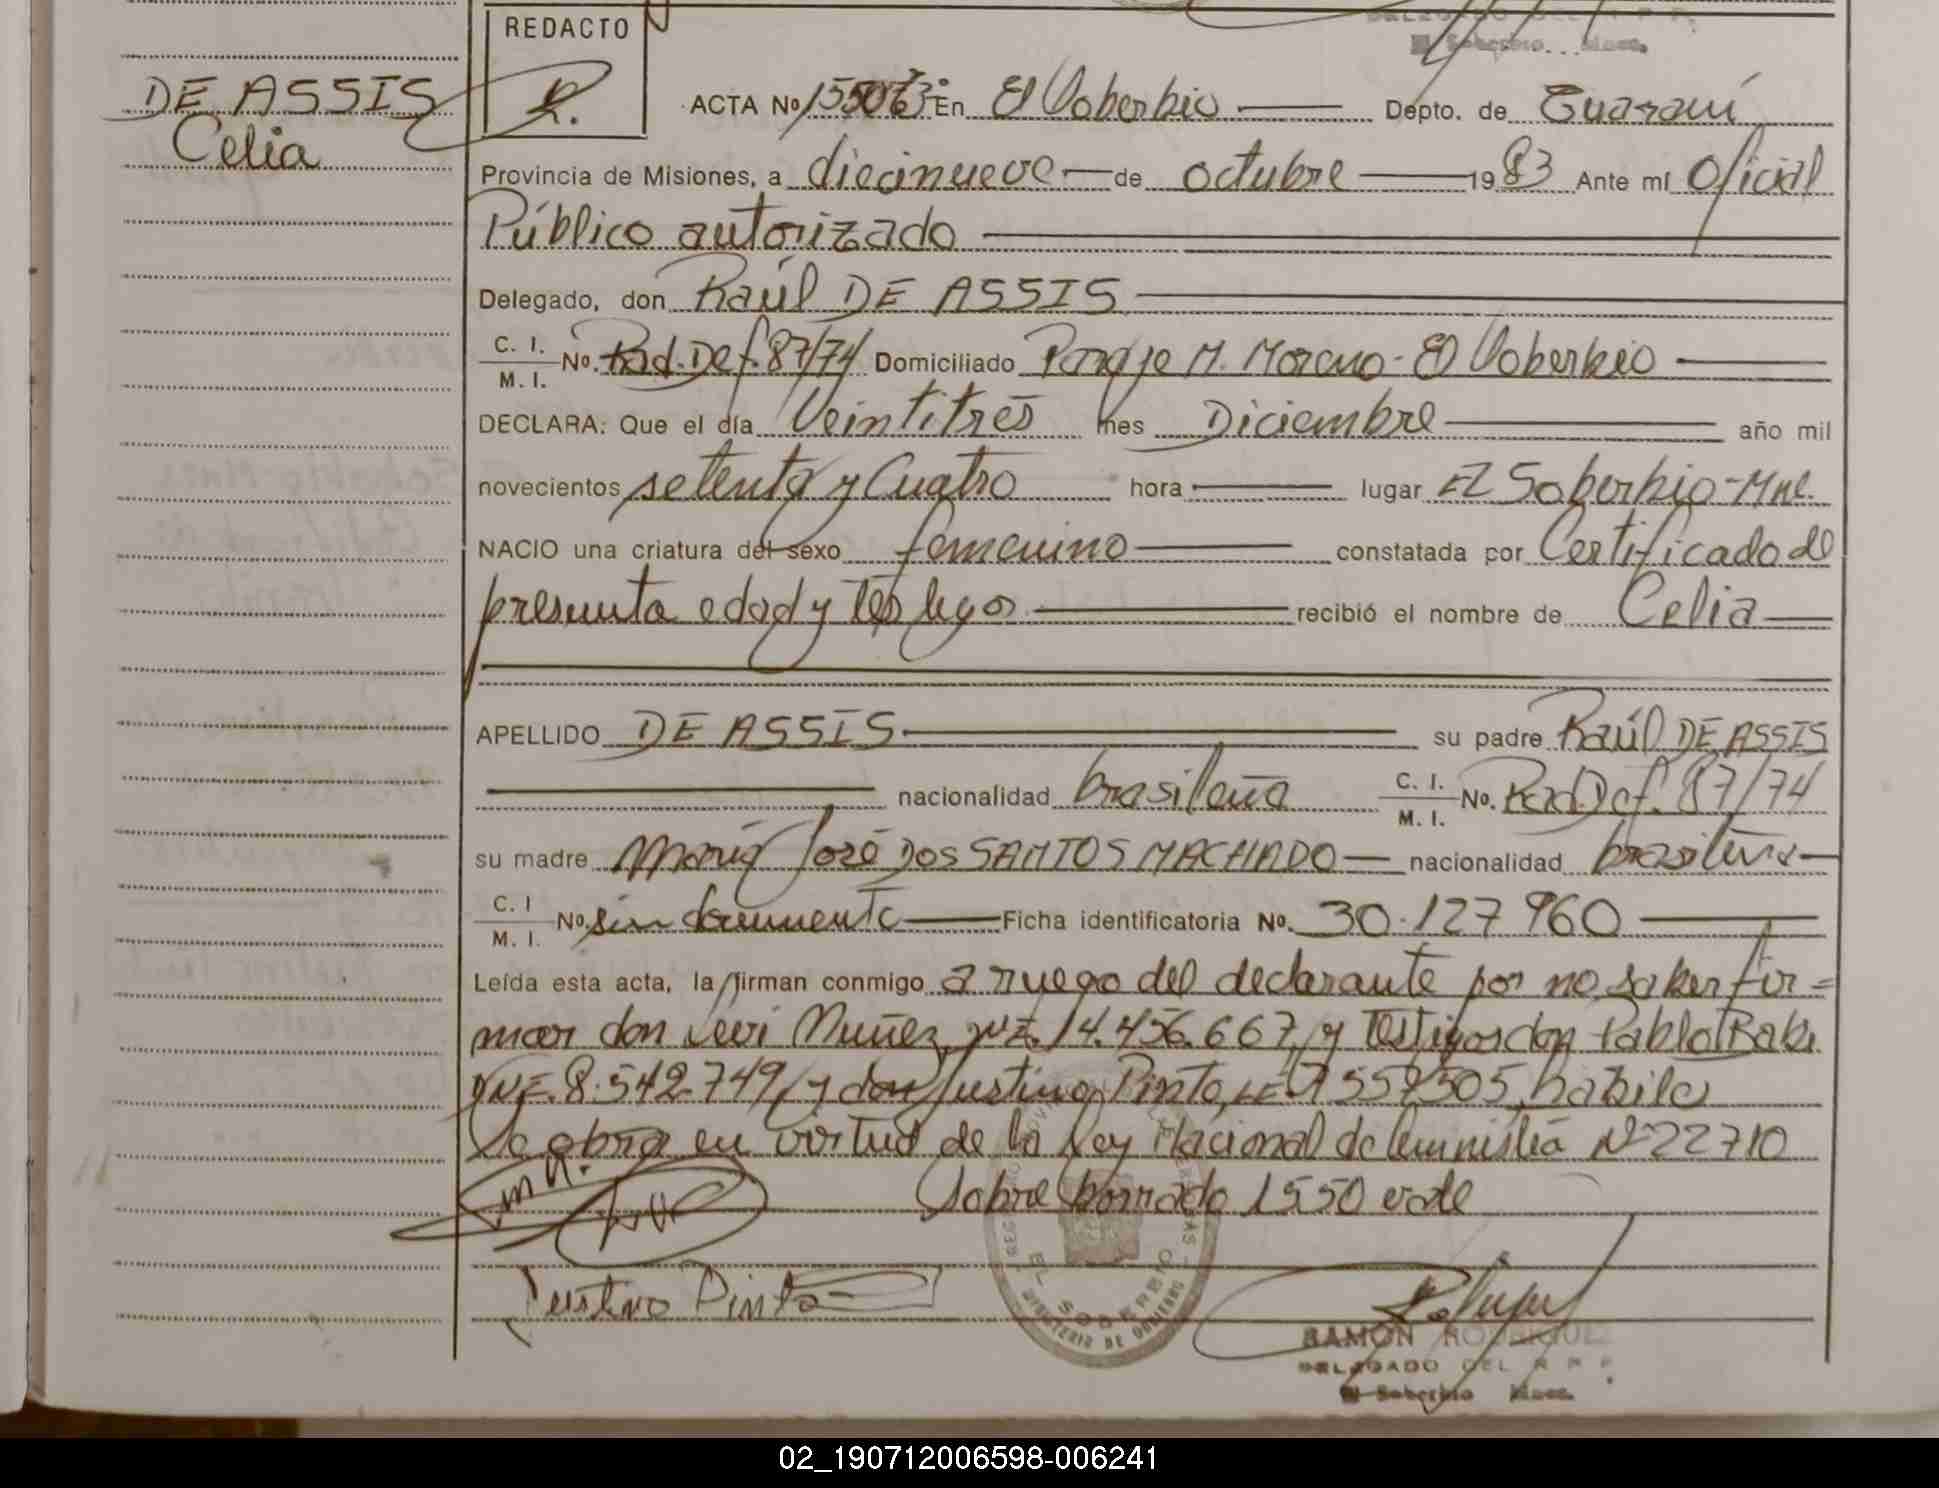 REDACTO
DE ASSIS
Celia
ACTA No 1550 En El Soberbio Depto. de Guaraní
Provincia de Misiones, a diecinueve de octubre 1983 Ante mí Oficial
Público autorizado
Delegado, don Raúl DE ASSIS
C. I.
M. I. No. Rad. Def. 87/74 Domiciliado Paraje M. Moreno - El Soberbio
DECLARA: Que el día Veintitrés mes Diciembre año mil
novecientos setenta y Cuatro hora lugar El Soberbio - Mnes.
NACIO una criatura del sexo femenino constatada por Certificado de
presunta edad y testigos recibió el nombre de Celia
APELLIDO DE ASSIS su padre Raúl DE ASSIS
nacionalidad brasileña C. I.
M. I. No. Rad. Def. 87/74
su madre María José DOS SANTOS MACHADO nacionalidad brasileña
C. I
M. I. No. sin documento Ficha identificatoria No. 30.127.960
Leída esta acta, la firman conmigo a ruego del declarante por no saber fir=
mar don Levi Muñez, 14.456.667, y Testigos don Pablo
DNI. 8.542.749, y don Justino Pinto, LE 7.559.505, hábiles
Se obra en virtud de la Ley Nacional de Amnistía Nº 22710
Sobre borrado 1550 vale
Justino Pinto
EL SOBERBIO
MINISTERIO DE GOBIERNO
RAMON RODRIGUEZ
DELEGADO DEL R. P. P.
El Soberbio Mnes.
02_190712006598-006241